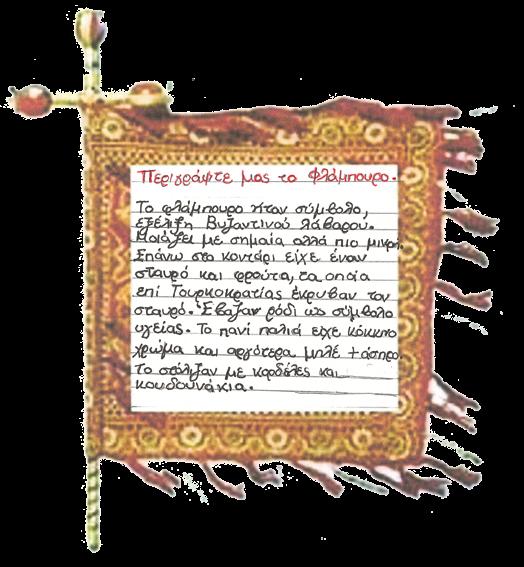 Περιγράψτε μας το Φλάμπουρο.
Το φλάμπουρο ήταν σύμβολο,
εξέλιξη Βυζαντινού λάβαρου.
Μοιάζει με σημαία αλλά πιο μικρή.
Επάνω στο κοντάρι είχε έναν
σταυρό και φρούτα, τα οποία
επί Τουρκοκρατίας έκρυβαν τον
σταυρό. Έβαζαν ρόδι ως σύμβολο
υγείας. Το πανί παλιά είχε κόκκινο
χρώμα και αργότερα μπλέ + άσπρο.
Το στόλιζαν με κορδέλες και
κουδουνάκια.